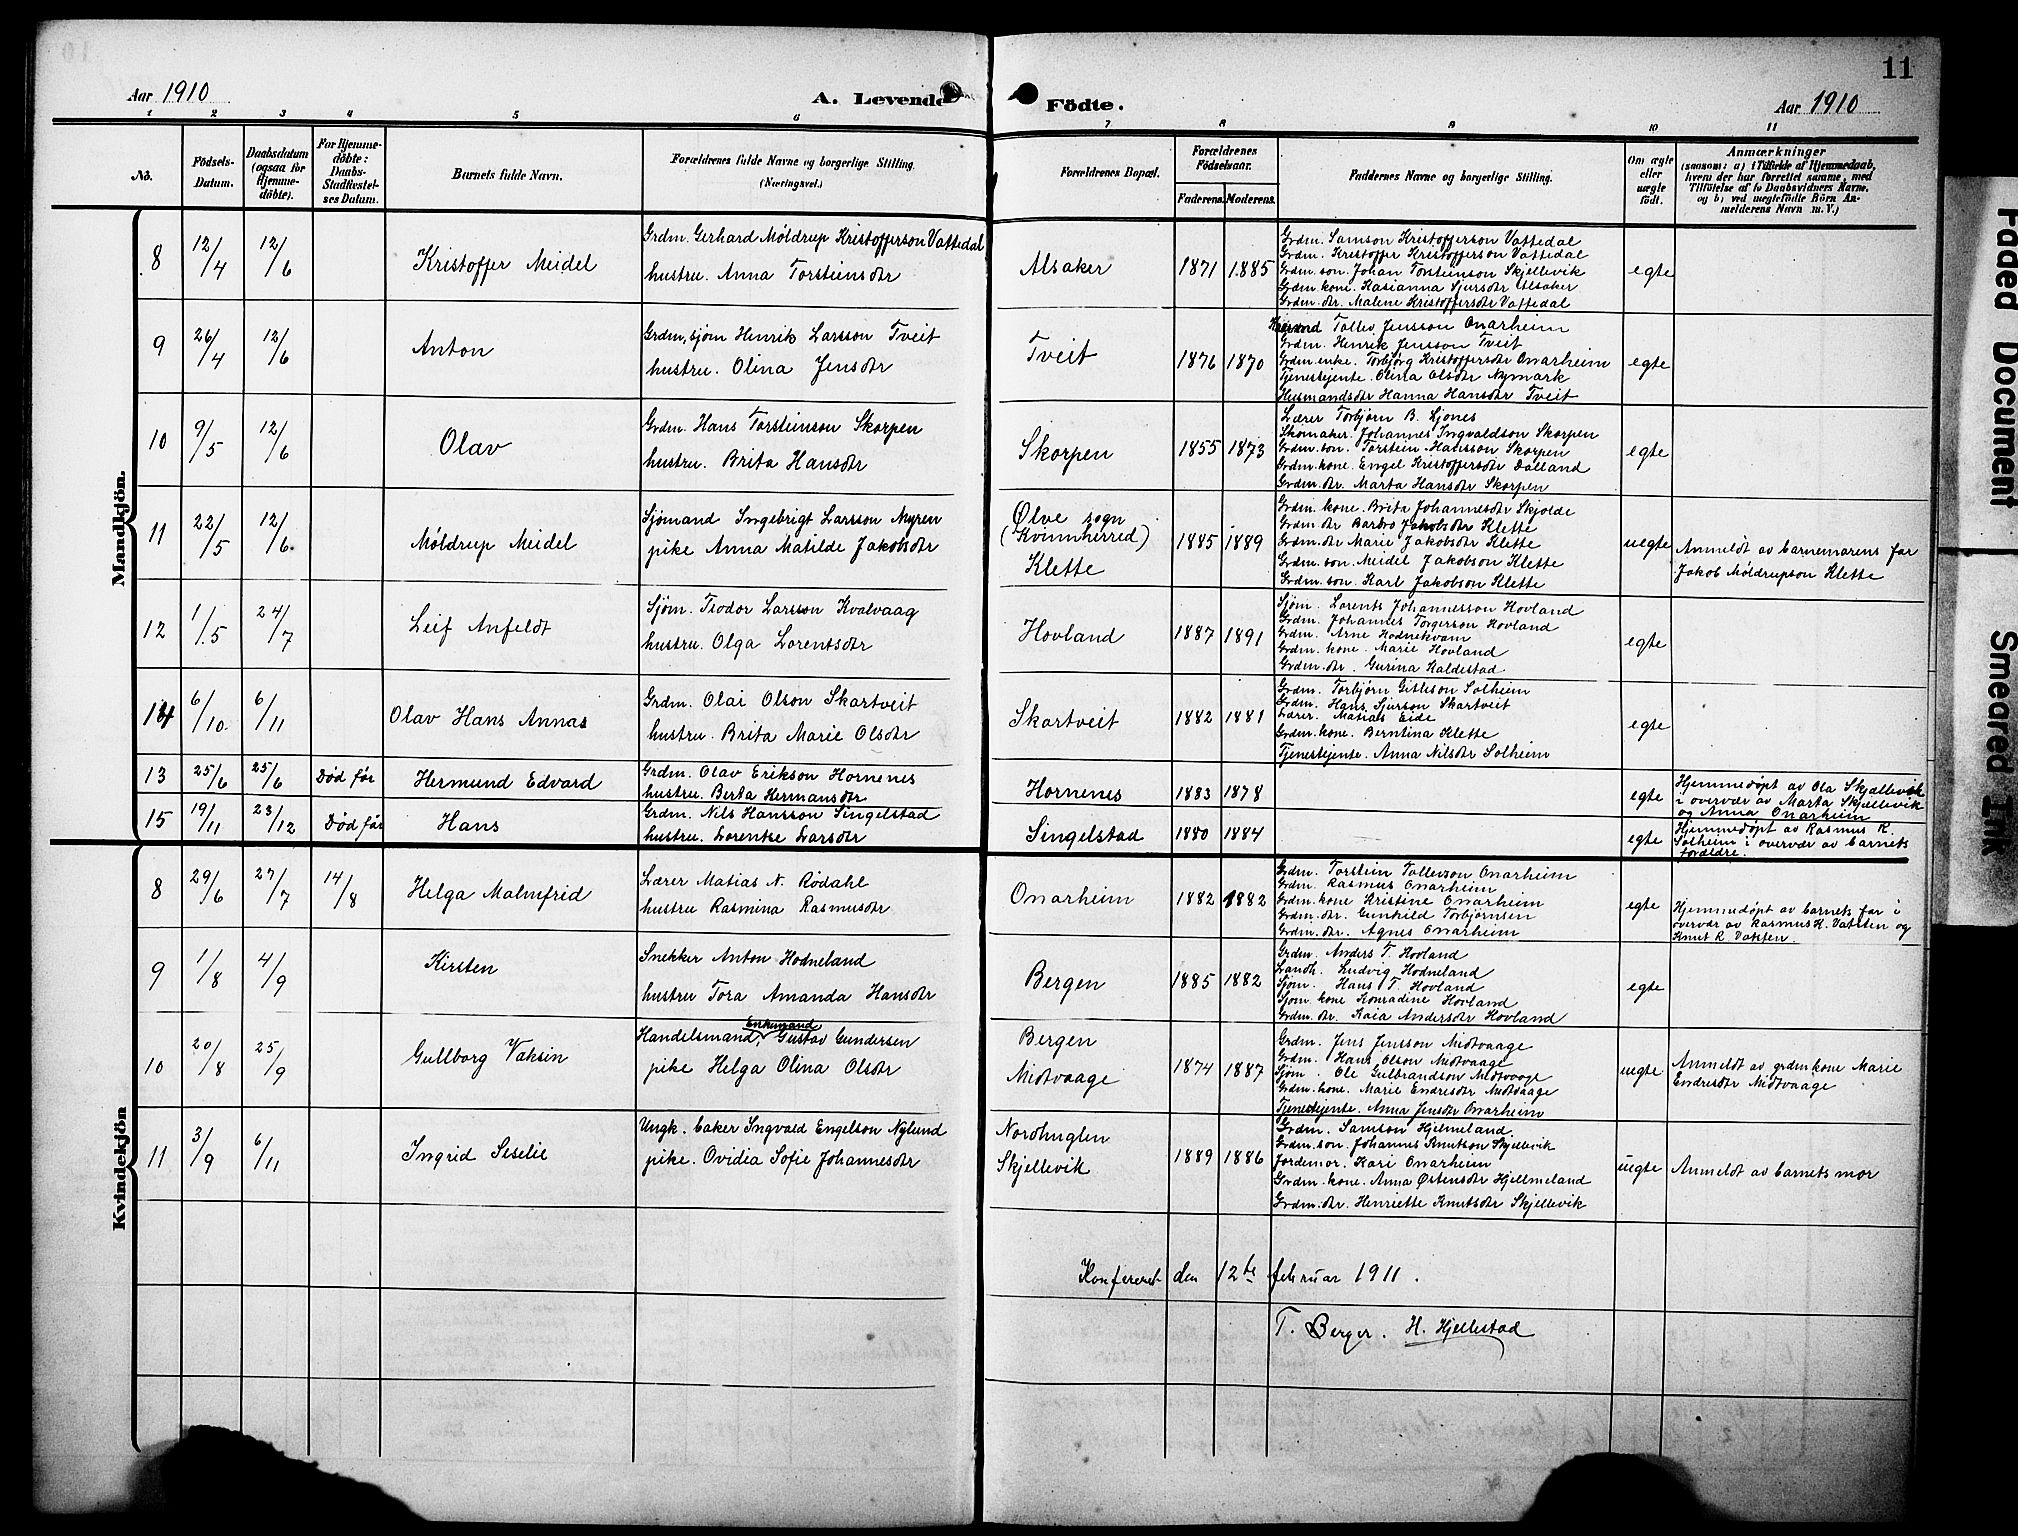 11
Aar 1910
A. Levende Födte.
Aar 1910
1 2 3 4 5 6 7 8 9 10 11
No.
Födsels-Datum.
Daabsdatum (ogsaa for Hjemme-döbte).
For Hjemme-döbte: Daabs-Stadfæstel-ses Datum.
Barnets fulde Navn.
Forældrenes fulde Navne og borgerlige Stilling. (Næringsvei.)
Forældrenes Bopæl.
Forældrenes Födselsaar.
Faderens. Moderens.
Faddernes Navne og borgerlige Stilling.
Om ægte eller uægte födt.
Anmærkninger
(saasom: a) i Tilfælde af Hjemmedaab, hvem der har forrettet samme, med Tilföielse af to Daabsvidners Navne, og b) ved uægtefödte Börn Anmelderens Navn m. V.)
Mandkjön.
8 12/4 12/6 Kristoffer Meidel
Grdm. Gerhard Møldrup Kristofferson Vattedal
hustru. Anna Torsteinsdtr
Alsaker 1871 1885
Grdm. Samson Kristofferson Vattedal
Grdm. Kristoffer Kristofferson Vattedal
Grdm. son. Johan Torsteinson Skjellevik
Grdm. kone. Kasianna Sjursdtr Alsaker
Grdm. dtr. Malene Kristoffersdtr Vattedal
egte
9 26/4 12/6 Anton
Grdm, sjøm Henrik Larsson Tveit
hustru. Olina Jensdtr
Tveit 1876 1870
Tollev Jensson Onarheim
Grdm. Henrik Jensson Tveit
Grdm. enke. Torbjørg Kristoffersdtr Onarheim
Tjenestjente. Olina Olsdtr Nymark
Husmandsdtr Hanna Hansdtr Tveit
egte
10 9/5 12/6 Olav
Grdm. Hans Torsteinson Skorpen
hustru. Brita Hansdtr
Skorpen 1855 1873
Lærer Torbjørn B. Ljones
Skomaker. Johannes Ingvaldson Skorpen
Grdm. son. Torstein Hansson Skorpen
Grdm. kone. Engel Kristoffersdtr Dalland
Grdm. dtr. Marta Hansdtr Skorpen
egte
11 22/5 12/6 Møldrup Meidel
Sjømand Ingebrigt Larsson Myren
pike Anna Matilde Jakobsdtr
Ølve sogn
(Kvinnherred)
Klette
1885 1889
Grdm. kone. Brita Johannesdtr Skjolde
Grdm dtr Barbro Jakobsdtr Klette
Grdm. dtr Marie Jakobsdtr Klette
Grdm. son. Meidel Jakobson Klette
Grdm. son. Karl Jakobson Klette
uegte
Anmeldt av barnemorens far
Jakob Møldrupson Klette
12 1/5 24/7 Leif Anfeldt
Sjøm. Teodor Larsson Kvalvaag
hustru. Olga Lorentsdtr
Hovland 1887 1891
Sjøm. Lorents Johannesson Hovland
Grdm. Johannes Torgerson Hovland
Grdm. Arne Hodnekvam
Grdm. kone. Marie Hovland
Grdm. dtr. Gurina Kaldestad
egte
14 6/10 6/11 Olav Hans Annas
Grdm. Olai Olson Skartveit
hustru. Brita Marie Olsdtr
Skartveit 1882 1881
Grdm. Torbjørn Gitleson Solheim
Grdm. Hans Sjurson Skartveit
Lærer. Matias Eide
Grdm. kone. Berntina Klette
Tjenestjente. Anna Nilsdtr Solheim
egte
13 25/6 25/6 Død før Hermund Edvard
Grdm. Olav Erikson Hornenes
hustru. Berta Hermansdtr
Hornenes 1883 1878 egte
Hjemmedøpt av Ola Skjellevik
i overvær av Marta Skjellevik
og Anna Onarheim
15 19/11 23/12 Død før Hans
Grdm. Nils Hansson Singelstad
hustru. Lorentse Larsdtr
Singelstad 1880 1884 egte
Hjemmedøpt av Rasmus R.
Solheim i overvær av barnets
foreldre.
Kvindekjön
8 29/6 27/7 14/8 Helga Malmfrid
Lærer Matias N. Rødahl
hustru Rasmina Rasmusdtr
Onarheim 1882 1882
Grdm. Torstein Tollevson Onarheim
Grdm. Rasmus Onarheim
Grdm. kone Kristine Onarheim
Grdm. dtr. Gunhild Torbjørnsen
Grdm. dtr. Agnes Onarheim
egte
Hjemmedøpt av barnets far i
overvær av Rasmus K. Vatten og
Knut R. Vatten.
9 1/8 4/9 Kirsten
Snekker Anton Hodneland
hustru Tora Amanda Hansdtr
Bergen 1885 1882
Grdm. Anders T. Hovland
Landh. Ludvig Hodneland
Sjøm. Hans T. Hovland
Sjøm. kone Konradine Hovland
Grdm. dtr. Kaia Andersdtr Hovland
egte
10 20/8 25/9 Gullborg Vaksin
Enkemand
Handelsmand, Gustav Gundersen
pike Helga Olina Olsdtr
Bergen
Midtvaage
1874 1887
Grdm. Jens Jensson Midtvaage
Grdm. Hans Olson Midtvaage
Sjøm. Ole Gulbrandson Midtvaage
Grdm. kone. Marie Endresdtr Midtvaage
Tjenestjente. Anna Jensdtr Onarheim
uegte
Anmeldt av grdmkone Marie
Endresdtr Midtvaage
11 3/9 6/11 Ingrid Seselie
Ungk. baker Ingvald Engelson Nylund
pike. Ovidia Sofie Johannesdtr
Nordhuglen
Skjellevik
1889 1886
Grdm. Samson Hjelmeland
Grdm. son. Johannes Knutson Skjellevik
Jordemor. Kari Onarheim
Grdm. kone. Anna Østensdtr Hjelmeland
Grdm. dtr. Henriette Knutsdtr Skjellevik
uegte
Anmeldt av barnets mor
Konfereret den 12te februar 1911.
T. Berger. H. Hjellestad
Faded Document
Smeared Ink